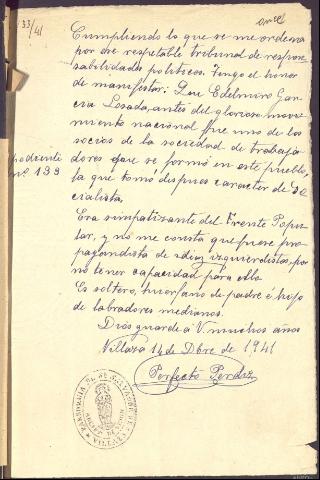 33/41
Cumpliendo lo que se me ordena
por ese respetable tribunal de respon
sabilidades politicas. Tengo el honor
de manifestar: Que Edelmiro Gar-
cia Losada, antes del glorioso movi-
miento nacional fue uno de los
socios de la sociedad de trabaja-
dores que se formó en este pueblo,
la que tomó despues caracter de So
cialista,
Era simpatizante del Frente Popu-
lar, y no me consta que fuese pro-
pagandista de ideas izquierdistas, por
no tener capacidad para ello
Es soltero, huerfano de padre é hijo
de labradores medianos.
Dios guarde á V. muchos años
Villaza 14 de Dbre de 1941
Perfecto
nº. 133
VILLAZA